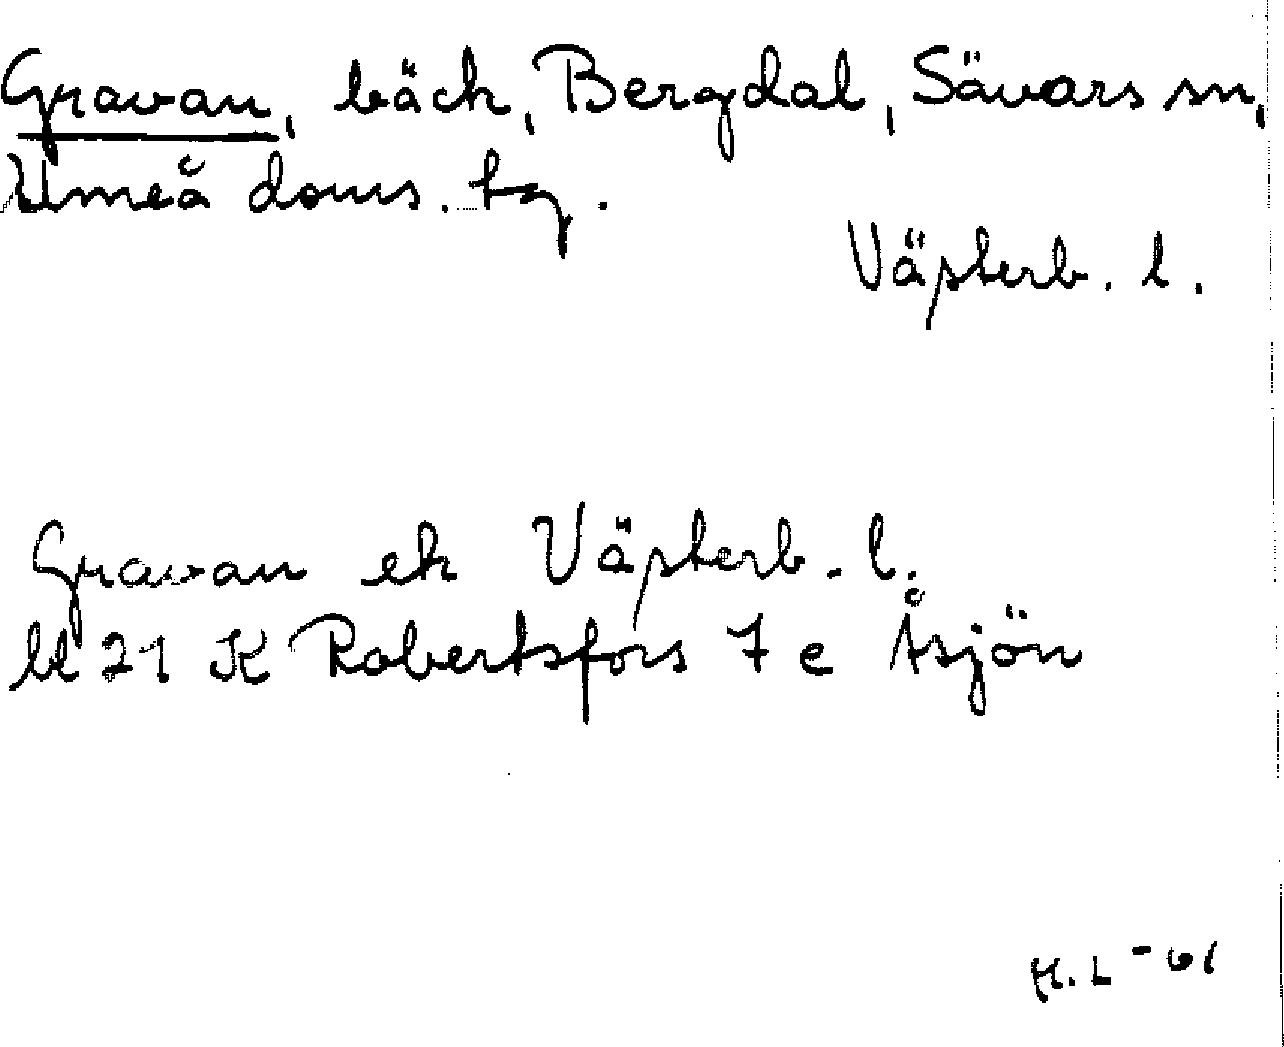 Gravan, bäck, Bergdal, Sävars sn,
Umeå doms. tg.
Västerb. l.
Gravan ek Västerb. l.
bl 21 K Robertsfors 7 e Åsjön
H.L -61